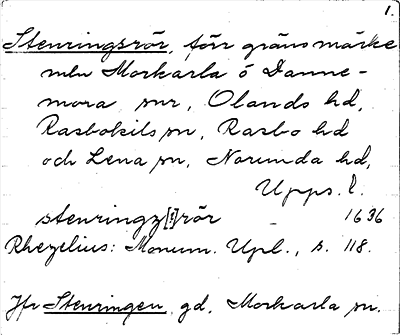 1.
Stenringsrör, förr gränsmärke
mln Morkarla o Danne-
mora snr, Olands hd,
Rasbokils sn, Rasbo hd
och Lena sn, Norunda hd,
Upps. l.
stenringz[!]rör 1636
Rhezelius: Monum. Upl., s. 118.
Jfr Stenringen gd, Morkarla sn.